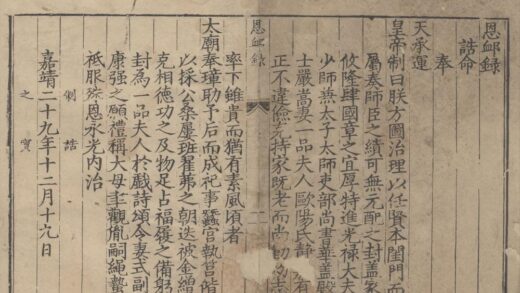 恩䘏錄
誥命
奉
天承運
皇帝制曰朕方圖治理以任賢本閨門而
師臣之績可無元配之封蓋家
攸隆肆國章之宜厚特進光祿大夫
少師兼太子太師吏部尚書華蓋殿
士嚴嵩妻一品夫人歐陽氏靜有
正不違儉持家既老而尚
恩䘏錄
二
率下雖貴而猶有素風頃者
太廟奉璋助予后而成祀事蠶宮執筥
以採公桑屢班翟茀之朝迭被金繒
克相德功之及物足占福履之備躬
封為一品夫人於戲詩頌令妻式副
康强之願禮稱大母聿觀胤嗣繩蟄
祗服殊恩永光内治
嘉靖二十九年十二月十六日
制誥
之寶